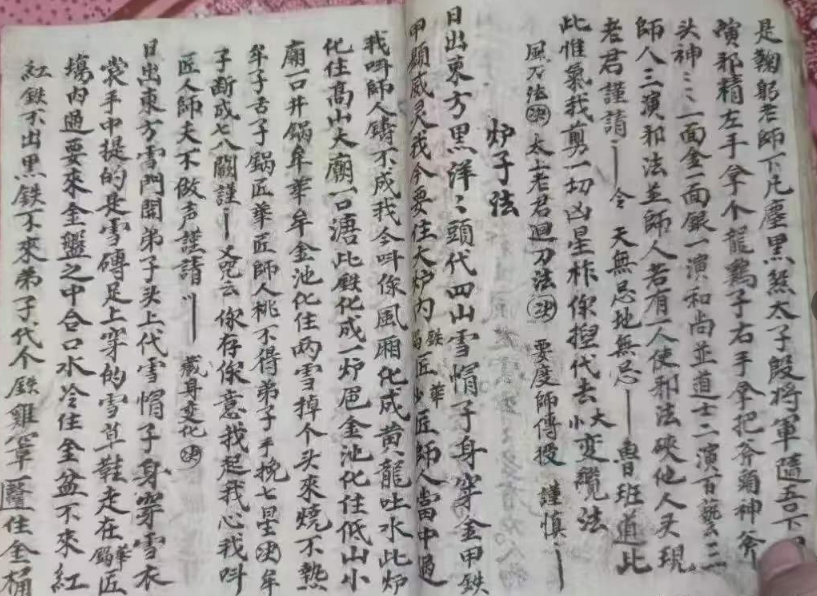 是鞠躬老師下凡塵黑煞太子殷將軍隨吾下
演邪精左手拿个龍鷄子右手拿把斧角神斧
头神〻〻一面金一面銀一演和尚並道士二演百藝三
師人三演邪法並師人若有一人使邪法砍他人头現
老君謹請 令 天無忌地無忌 魯班道此
此惟氣我剪一切凶星柞你捏代去大小变纜法
風刀法 太上老君迴刀法 要度師傳授 謹慎
炉子法
日出東方黑洋〻頭代四山雪帽子身穿金甲鉄
甲顕威灵我今要住大炉内鉄鍋匠華匠師人當中過
我叫師人鑄不成我今叫你風廂化成黄龍吐水此炉
化住高山大廟一口溏此鉄化成一炉邑金池化住低山小
廟一口井鍋牟華牟金池化住两雪掉个头來燒不熟
牟子舌子鍋匠華匠師人桃不得弟子手挽七星 牟
子断成七八關謹 又咒云 你存你意我起我心我叫
匠人師夫不做声謹請 藏身变化
日出東方雪門開弟子头上代雪帽子身穿雪衣
裳手中提的是雪磚足上穿的雪草鞋走在鍋華匠
塲内過要來金盤之中合口水冷住金盆不來紅
紅鉄不出黑鉄不來弟子代个鉄雞罩一匽住全桶